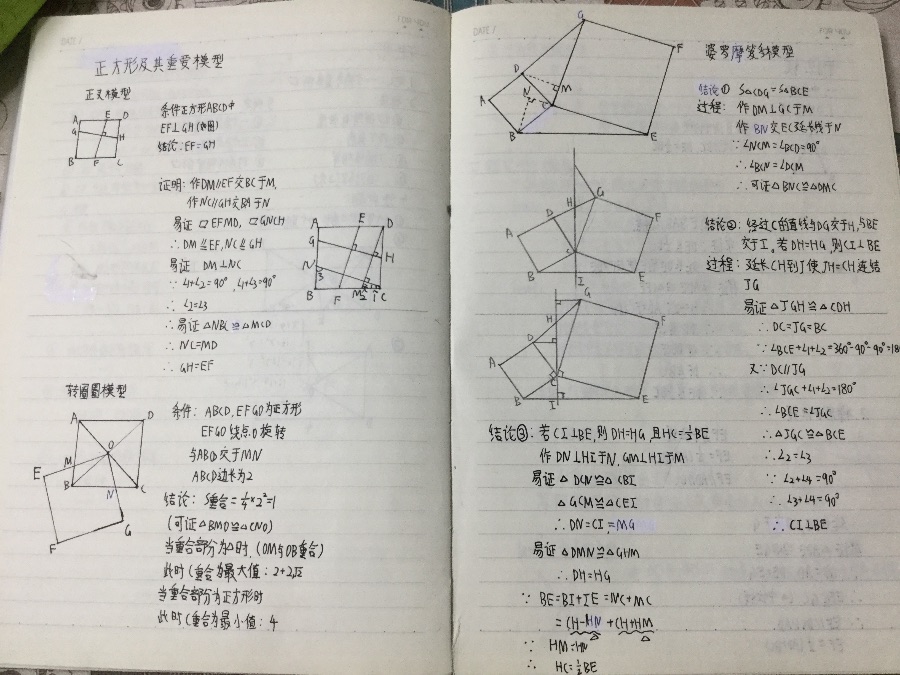 正方形及其重要模型
正叉模型
A E D
G H
B F C
条件正方形ABCD中
EF⊥GH(如图)
结论:EF=GH
证明:作DM//EF交BC于M,
作NC//GH交BA于N
易证 ▱EFMD, ▱GNCH
∴ DM≚EF,NC≚GH
易证 DM⊥NC
∵ ∠1+∠2=90°, ∠1+∠3=90°
∴ ∠2=∠3
∴ 易证 △NBC≌△MCD
∴ NC=MD
∴ GH=EF
A E D
G
H
N 3
B F M 2 1 C
转圈圈模型
A D
O
M
E B N C
G
F
条件: ABCD,EFGO为正方形
EFGO绕点O旋转
与ABCD交于MN
ABCD边长为2
结论: S重合=¼×2²=1
(可证△BMO≌△CNO)
当重合部分为△时,(OM与OB重合)
此时C重合为最大值:2+2√2
当重合部分为正方形时
此时C重合为最小值:4
婆罗摩笈多模型
G
F
D
M
A N C
B E
结论① S△CDG=S△BCE
过程: 作DM⊥GC于M
作BN交EC延长线于N
∵ ∠NCM=∠BCD=90°
∴ ∠BCN=∠DCM
∴ 可证△BNC≌△DMC
H G
D F
A
C
B I E
结论②: 经过C的直线与DG交于H,与BE
交于I。若DH=HG,则CI⊥BE
过程: 延长CH到J使JH=CH连结
JG
易证△JGH≌△CDH
∴ DC=JG=BC
∵ ∠BCE+∠1+∠2=360°-90°-90°=180°
又∵ DC//JG
∴ ∠JGC+∠1+∠2=180°
∴ ∠BCE=∠JGC
∴ △JGC≌△BCE
∴ ∠2=∠3
∵ ∠2+∠4=90°
∴ ∠3+∠4=90°
∴ CI⊥BE
G
H F
D
A
C
B I E
结论③: 若CI⊥BE,则DH=HG 且HC=½BE
作DN⊥HI于N,GM⊥HI于M
易证△DCN≌△CBI
△GCM≌△CEI
∴ DN=CI=MG
易证△DMN≌△GHM
∴ DH=HG
∵ BE=BI+IE=NC+MC
=CH-HN+CH+HM
∵ HM=HN
∴ HC=½BE